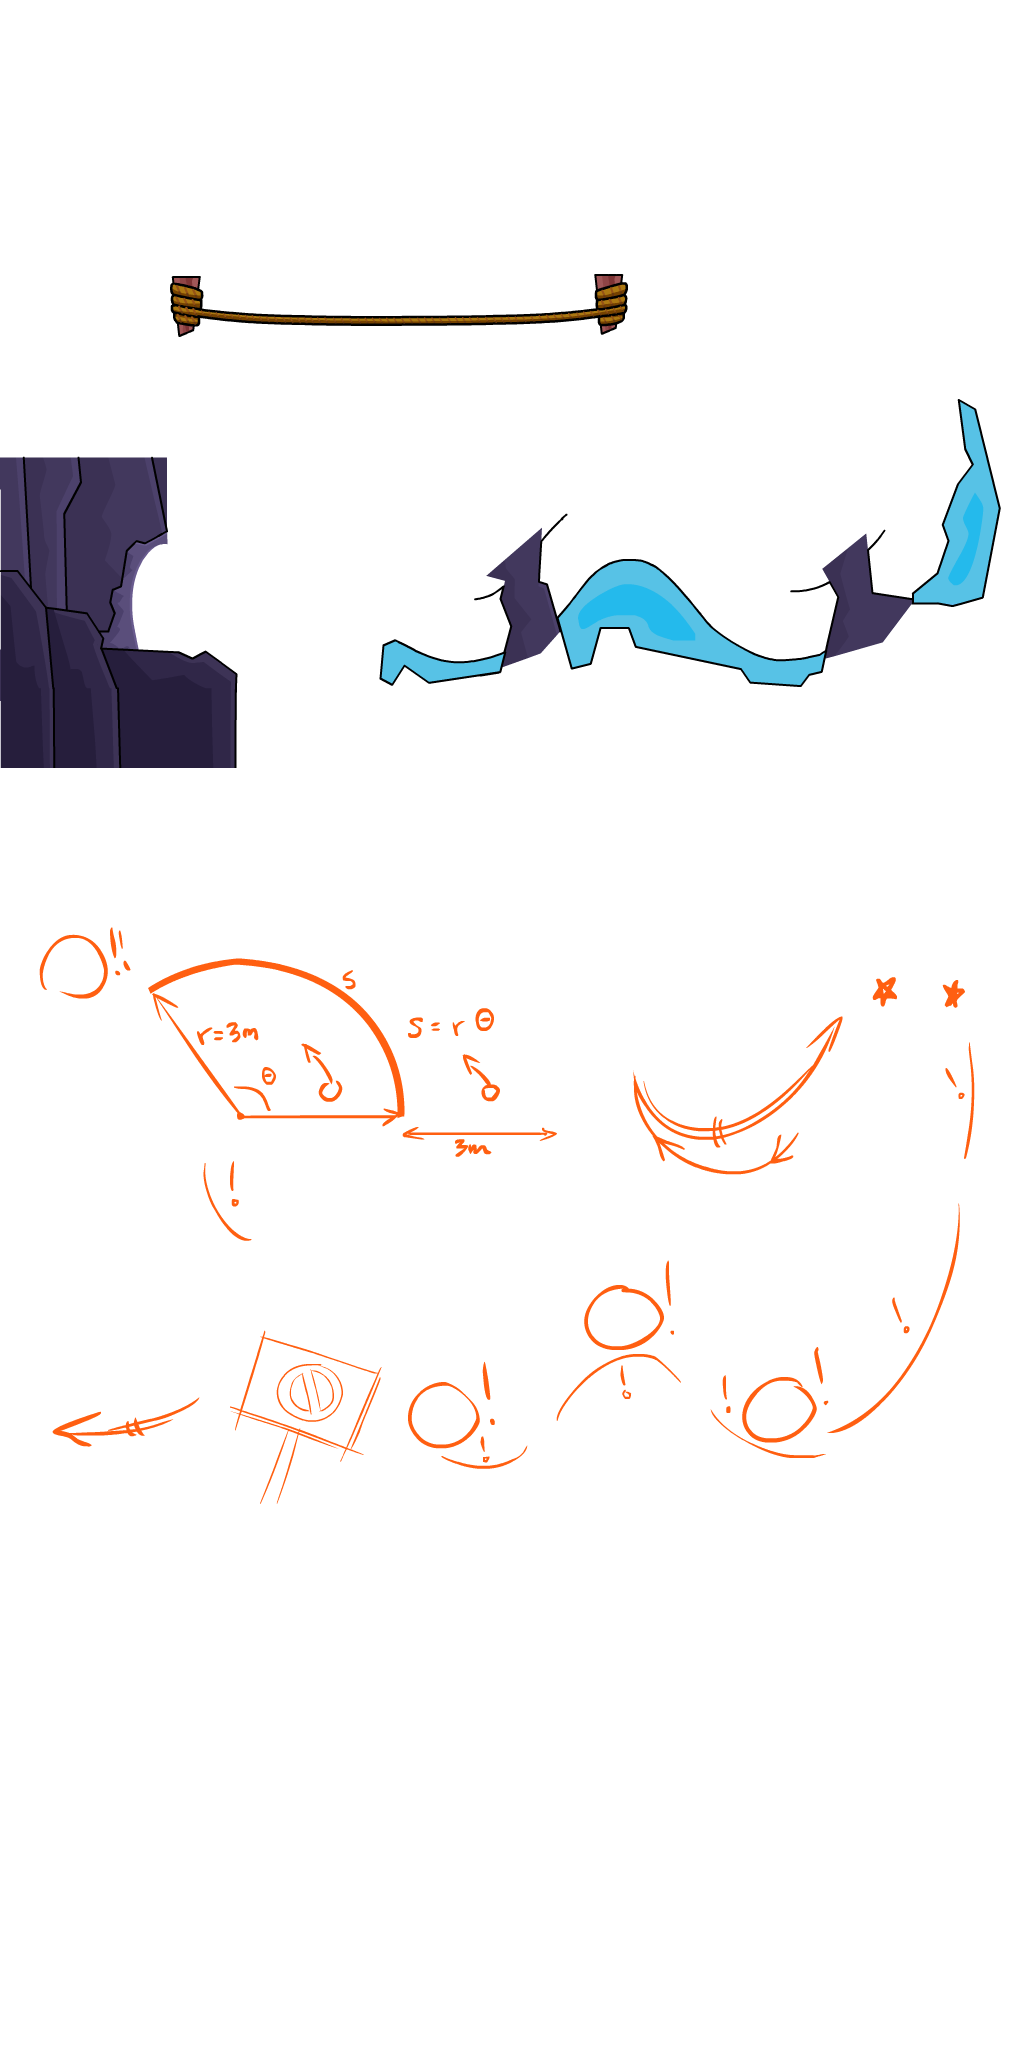 !!
s
r=3m
s = r θ
θ
!
3m
!
!
!
!
!
!
!
!
!